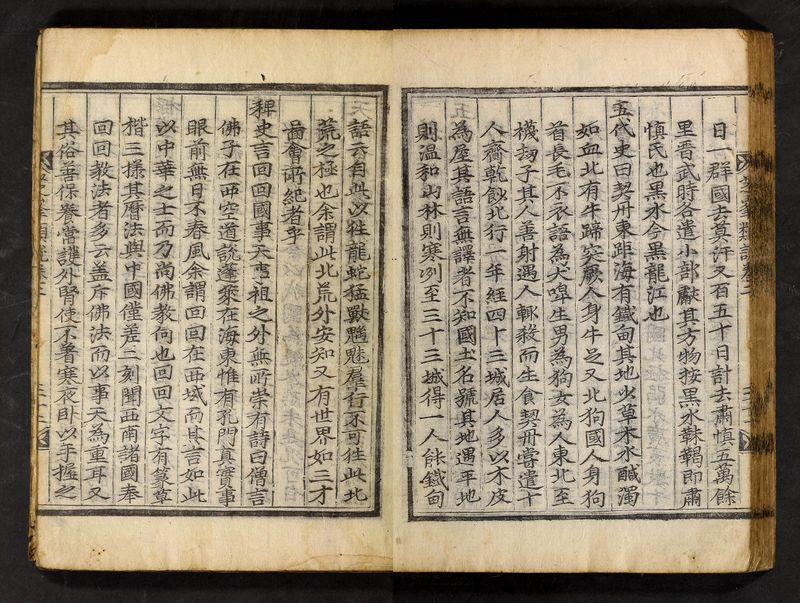 日一群國去莫汗又百五十日計去肅慎五萬餘
里晋武時各遣小部獻其方物按黑水靺鞨即肅
慎氏也黑水今黑龍江也
五代史曰契丹東距海有鐵甸其地少草木水鹹濁
如血北有牛蹄突厥人身牛足又北狗國人身狗
首長毛不衣語為犬嘷生男為狗女為人東北至
襪劫子其人善射遇人輒殺而生食契丹嘗遣十
人齎乾飯北行一年經四十三城居人多以木皮
為屋其語言無譯者不知國土名號其地遇平地
則温和山林則寒冽至三十三城得一人能鐵甸
語云自此以往龍蛇猛獸魑魅羣行不可往此北
荒之極也余謂此北荒外安知又有世界如三才
圖會所紀者乎
稗史言回回國事天馬祖之外無所崇有詩曰僧言
佛子在西空道說蓬萊在海東惟有孔門真實事
眼前無日不春風余謂回回在西域而其言如此
以中華之士而乃尚佛教何也回回文字有篆草
楷三樣其曆法與中國僅差三刻聞西南諸國奉
回回教法者多云盖斥佛法而以事天為重耳又
其俗善保養常護外腎使不著寒夜卧以手握之